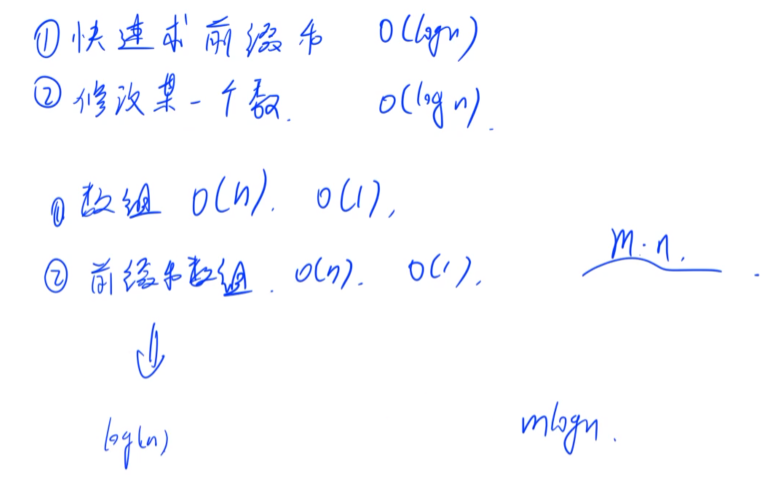 ① 快速求前缀和 O(logn)
② 修改某一个数. O(logn).
① 数组 O(n). O(1),
② 前缀和数组. O(n). O(1),
m·n.
log(n)
mlogn.